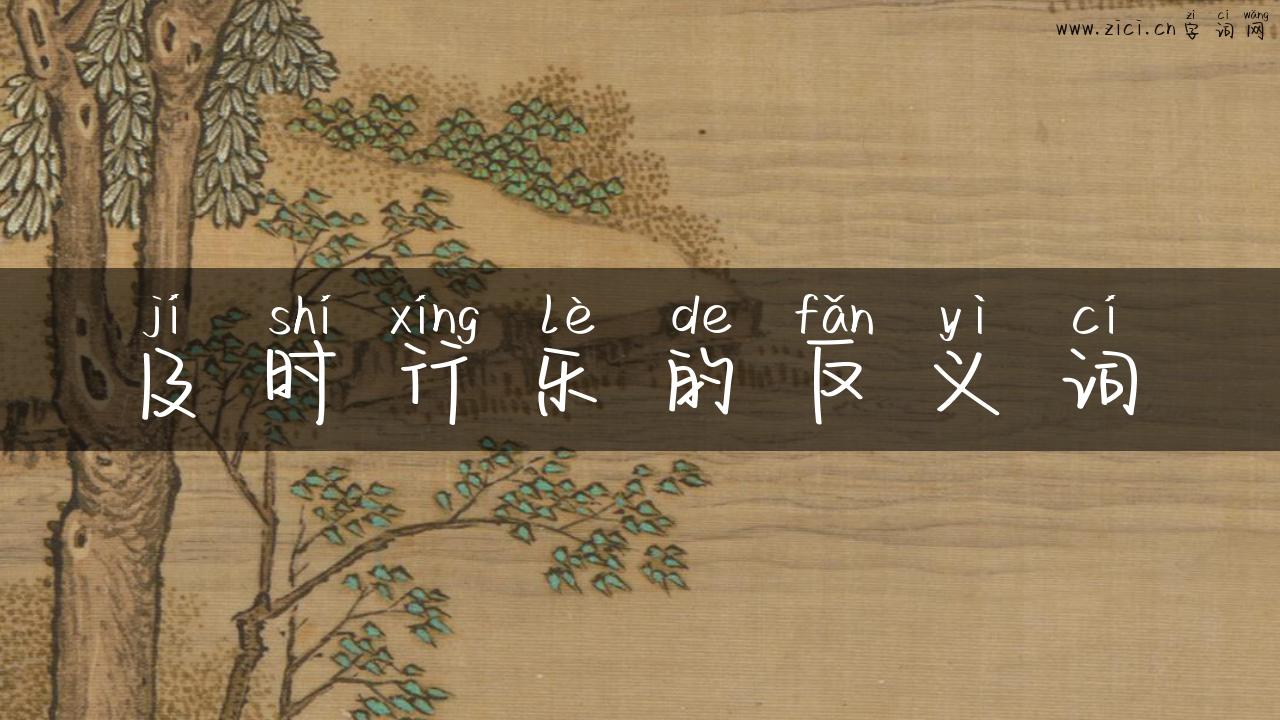 zì cí wǎng
www.zici.cn 字词网
jí shí xíng lè de fǎn yì cí
及时行乐的反义词